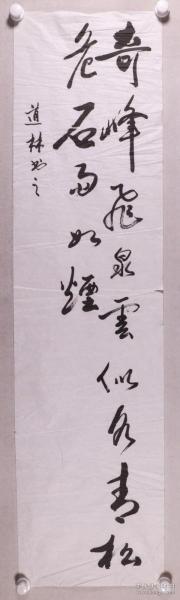 奇峰飛泉雲似水青松
危石雨如煙
道林书之